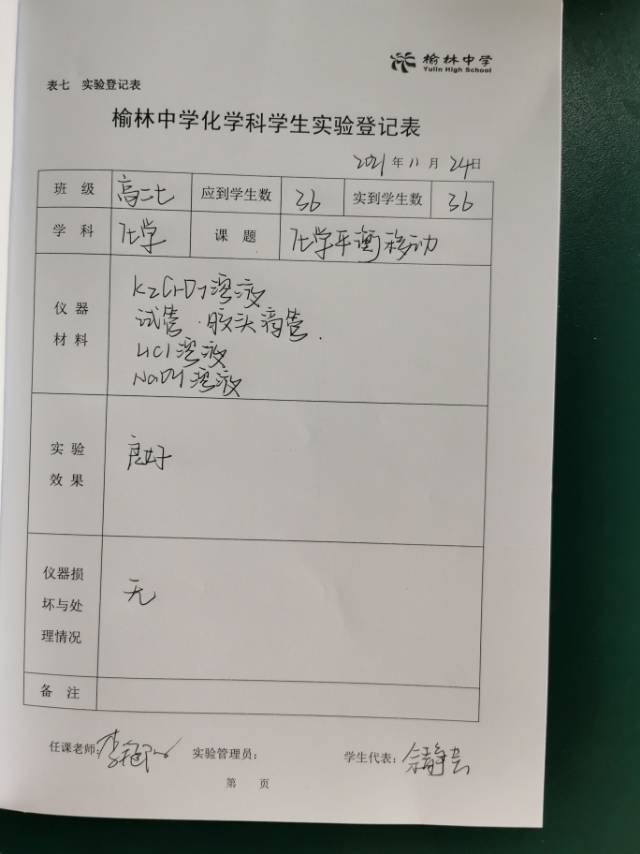 榆林中学
Yulin High School
表七 实验登记表
榆林中学化学科学生实验登记表
2021年11月24日
班 级 高二七 应到学生数 36 实到学生数 36
学 科 化学 课 题 化学平衡移动
仪 器
材 料
K2Cr2O7溶液
试管.胶头滴管.
HCl溶液
NaOH溶液
实 验
效 果
良好
仪器损
坏与处
理情况
无
备 注
任课老师: 实验管理员: 学生代表:
第 页